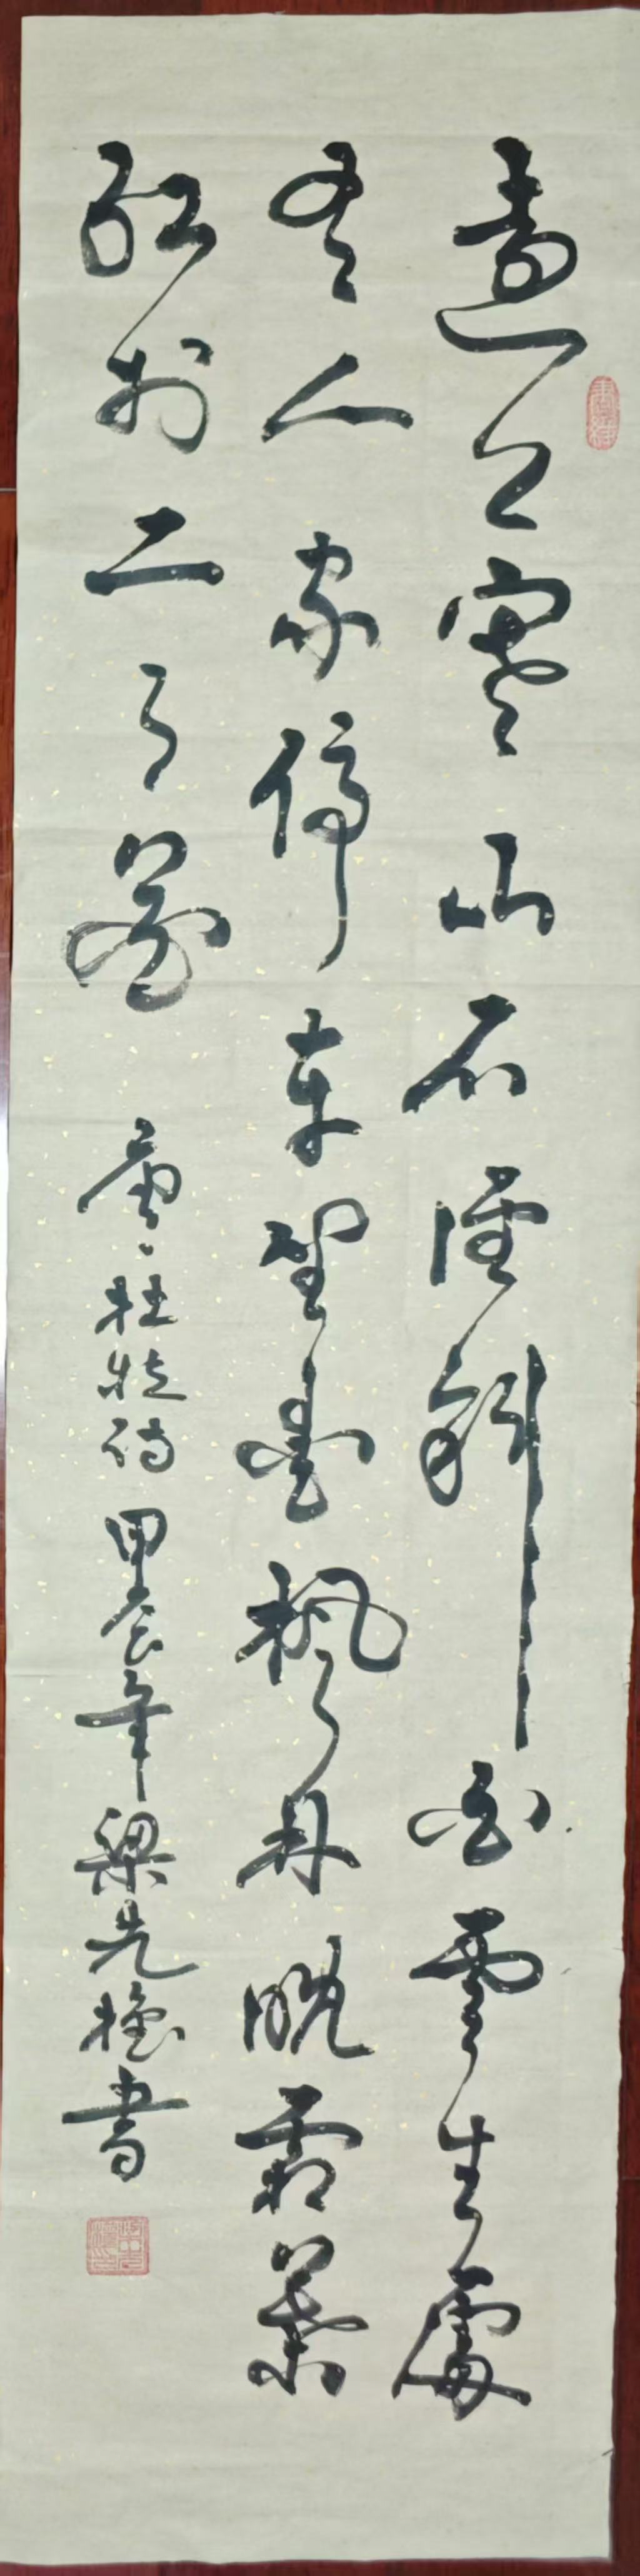 遠上寒山石徑斜白雲生處
有人家停車坐愛楓林晚霜葉
紅於二月花 唐杜牧詩 甲辰年梁先書